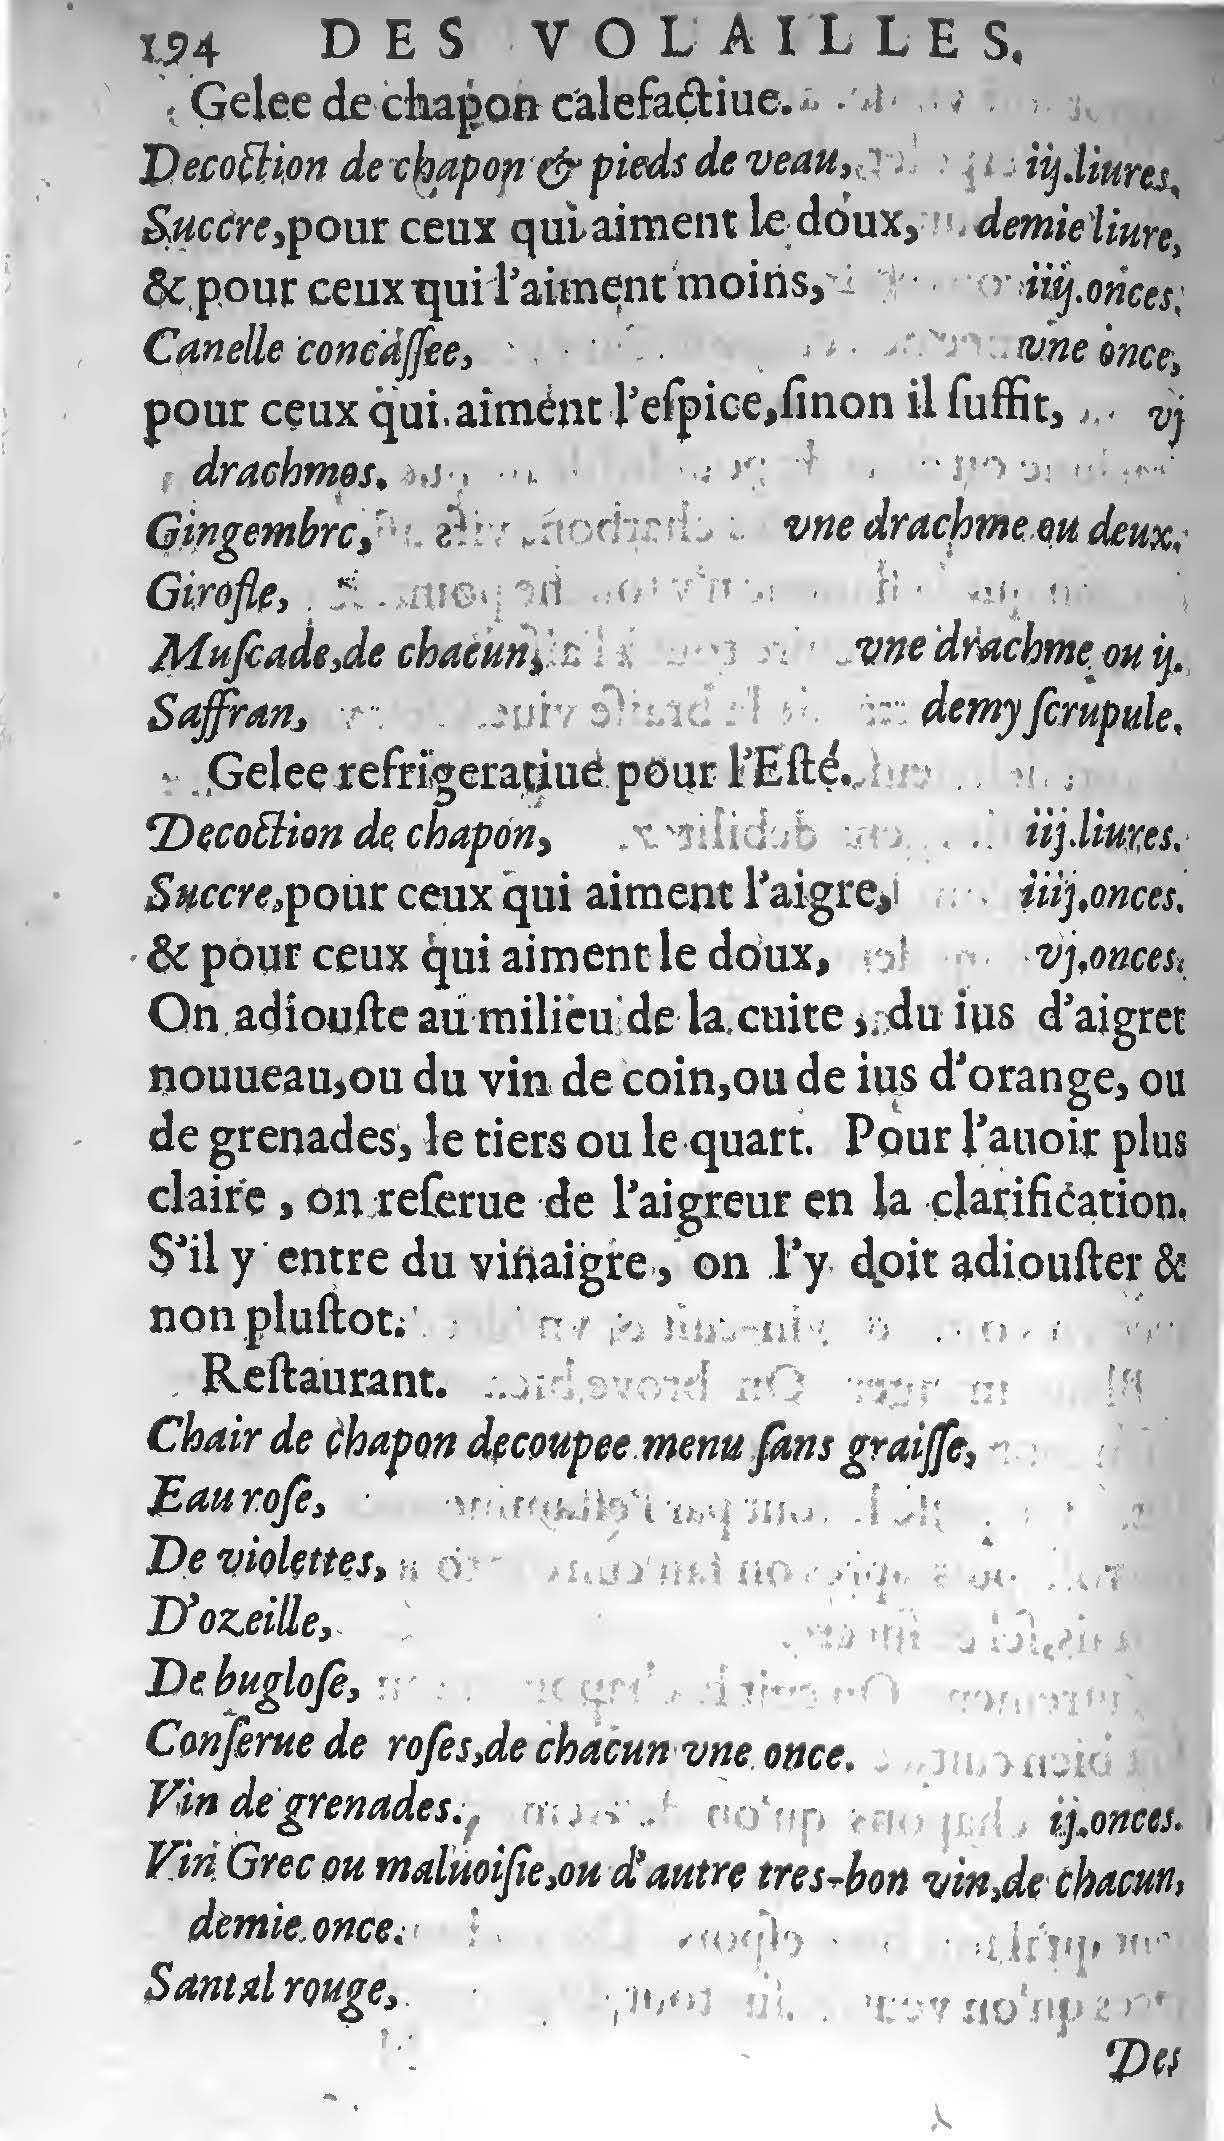 194 DES VOLAILLES.
Gelee de chapon calefactiue.
Decoction de chapon & pieds de veau, iij.liures.
Succre,pour ceux qui aiment le doux, demie liure,
& pour ceux qui l'aiment moins, iiij.onces.
Canelle concaſſee, vne once,
pour ceux qui aiment l'eſpice,ſinon il ſuffit, vj
drachmes.
Gingembre, vne drachme ou deux.
Girofle,
Muſcade,de chacun, vne drachme ou ij.
Saffran, demy ſcrupule.
Gelee refrigeratiue pour l'Eſté.
Decoction de chapon, iij.liures.
Succre,pour ceux qui aiment l'aigre, iiij.onces.
& pour ceux qui aiment le doux, vj.onces.
On adiouſte au milieu de la cuite, du ius d'aigret
nouueau,ou du vin de coin,ou de ius d'orange, ou
de grenades, le tiers ou le quart. Pour l'auoir plus
claire, on reſerue de l'aigreur en la clarification.
S'il y entre du vinaigre, on l'y doit adiouſter &
non pluſtot.
Reſtaurant.
Chair de chapon decoupee menu ſans graiſſe,
Eau roſe,
De violettes,
D'ozeille,
De bugloſe,
Conſerue de roſes,de chacun vne once.
Vin de grenades. ij.onces.
Vin Grec ou maluoiſie,ou d'autre tres-bon vin,de chacun,
demie once.
Santal rouge,
Des